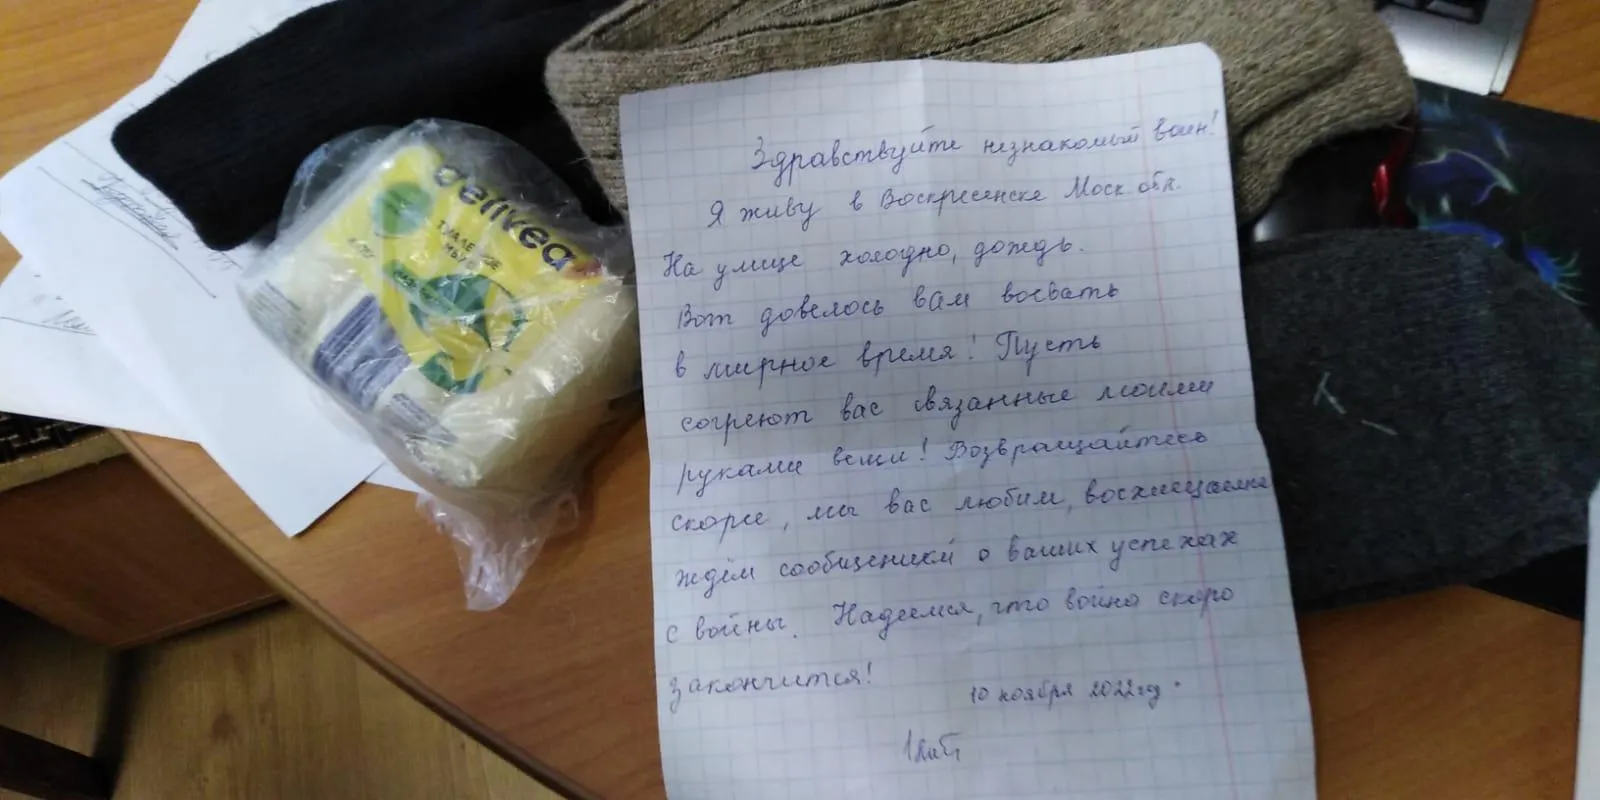 Здравствуйте незнакомый воин!
Я живу в Воскресенске Моск обл.
На улице холодно, дождь.
Вот довелось вам воевать
в мирное время! Пусть
согреют вас связанные моими
руками вещи! Возвращайтесь
скорее, мы вас любим, восхищаемся
ждём сообщений о ваших успехах
с войны. Надеемся, что война скоро
закончится!
10 ноября 2022 год.
delivea
ТУАЛЕТНОЕ
МЫЛО